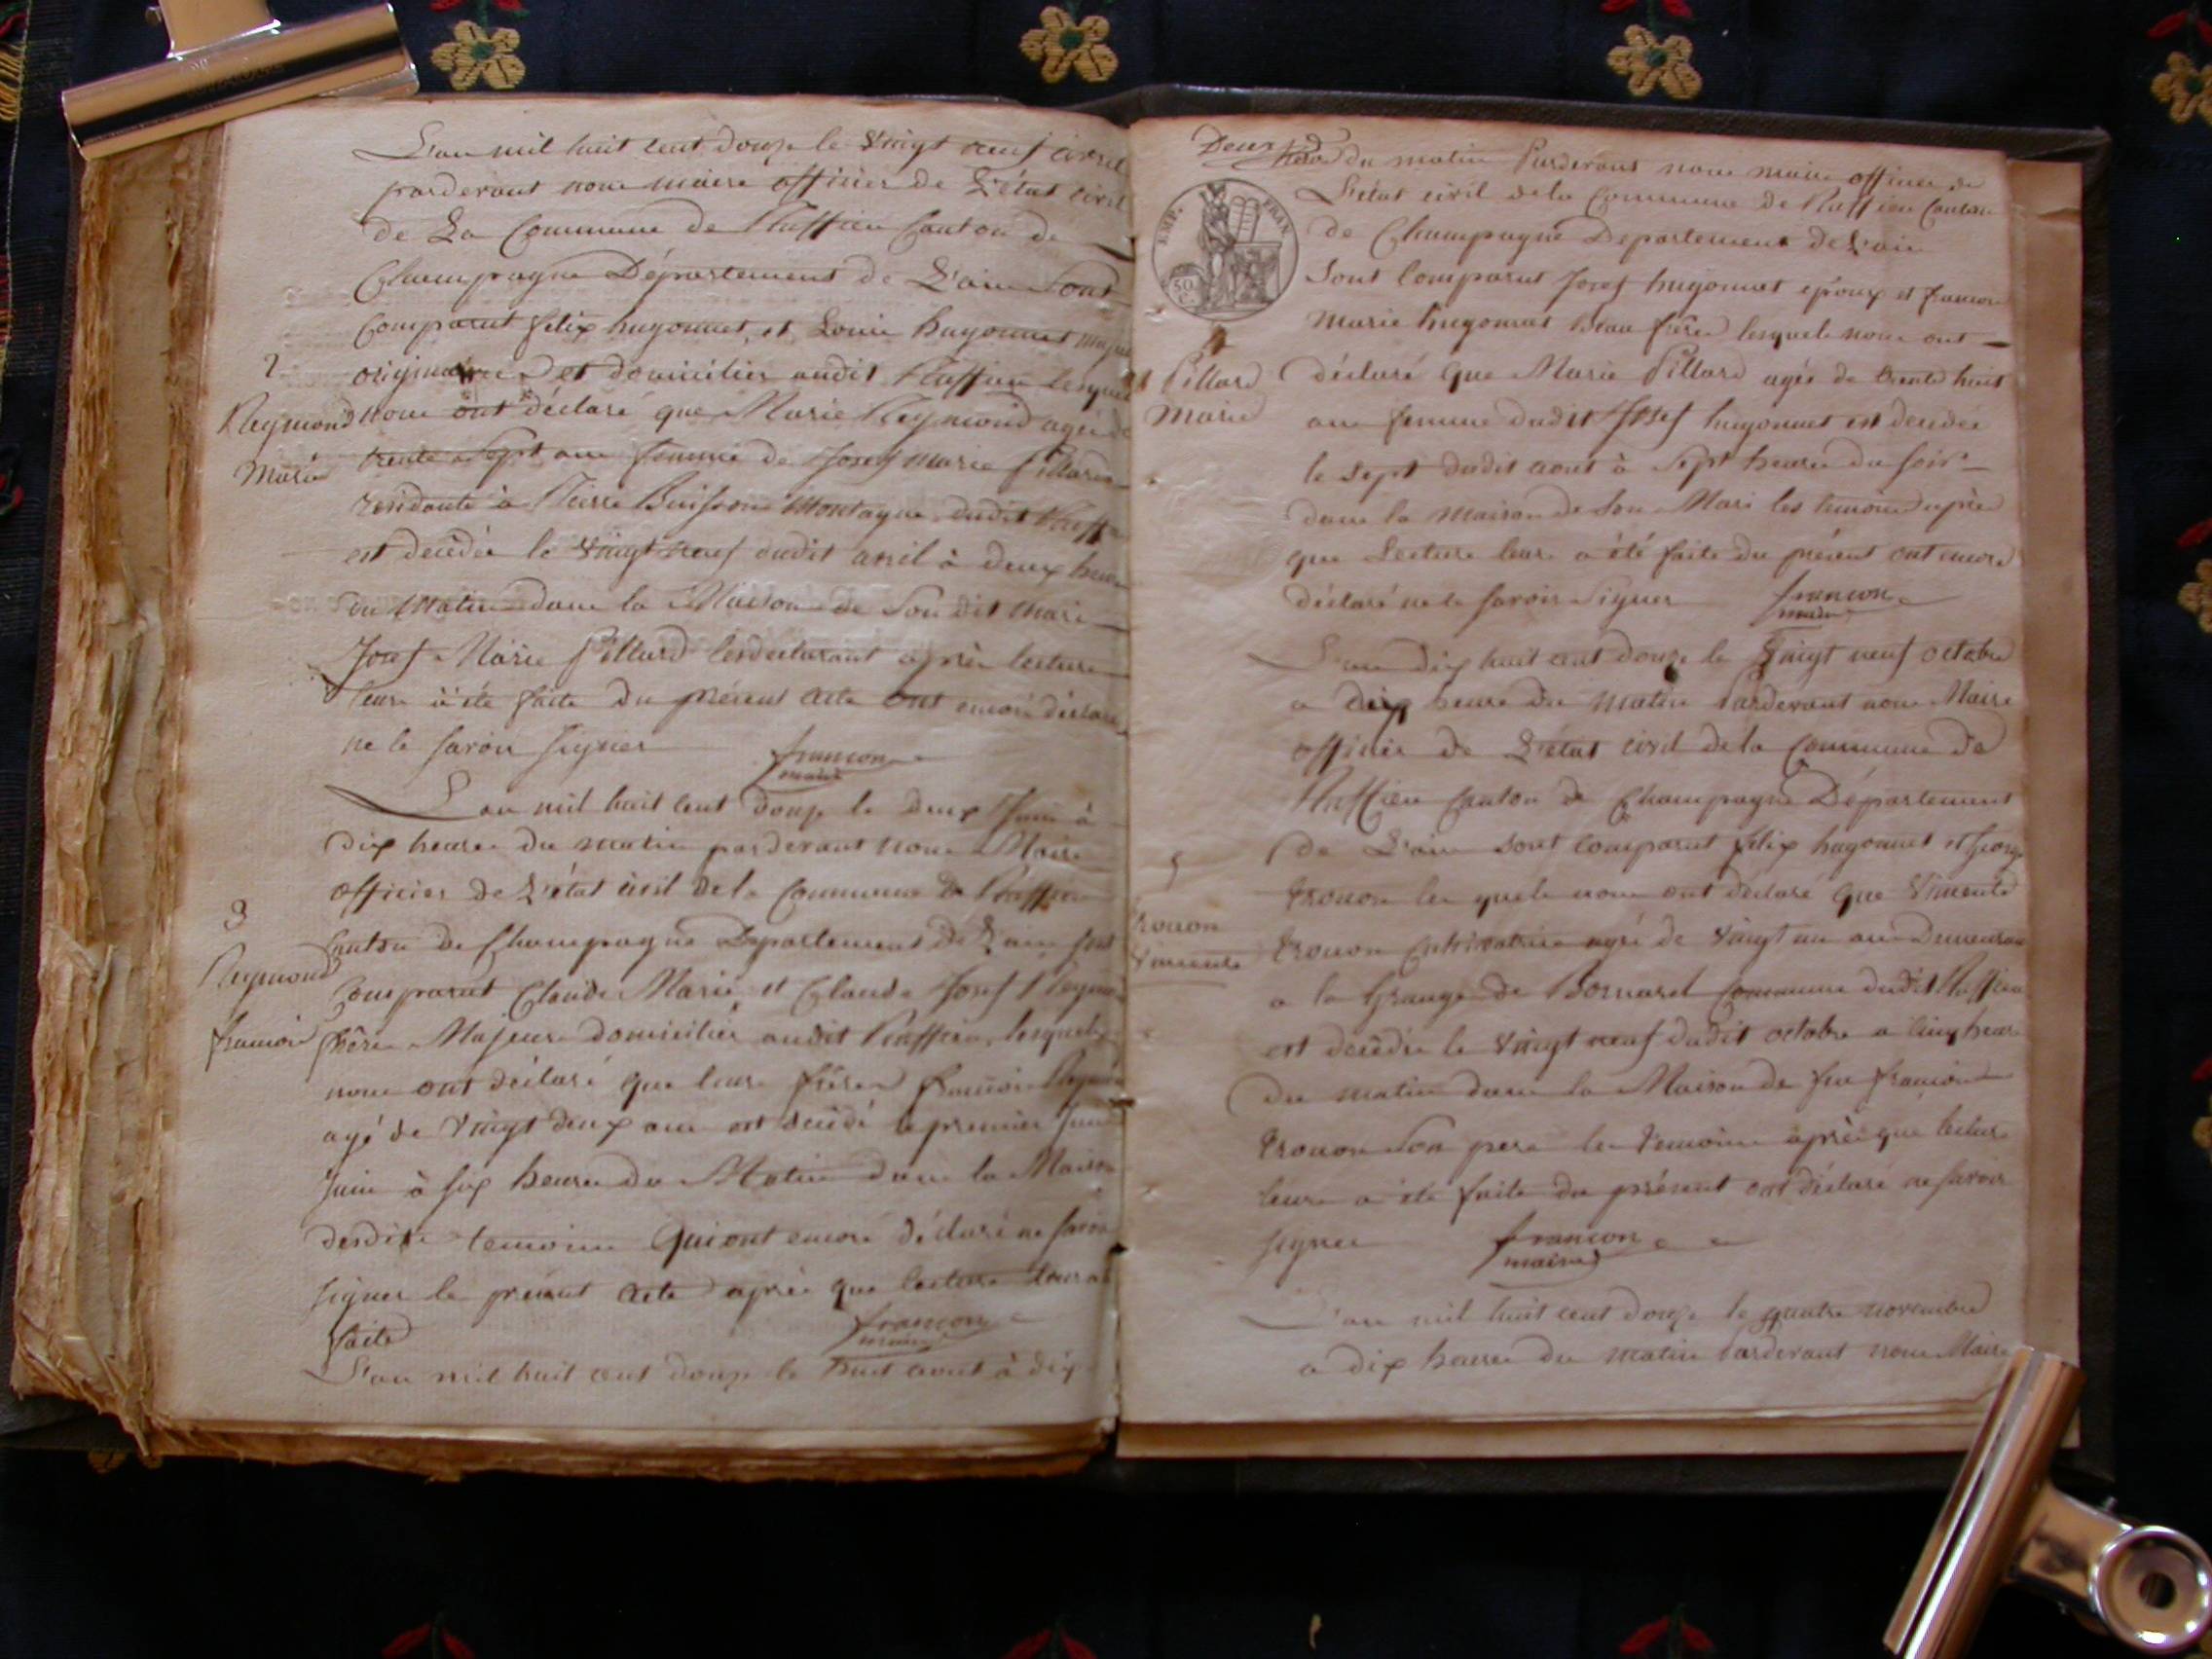 L'an mil huit cent douze le vingt neuf avril
pardevant nous maire officier de L'état civil
de La Commune de Ruffieu Canton de
Champagne Département de L'ain Sont
Comparut félix hugonnet, et Louis hugonnet
originaires et domiciliés audit Ruffieu lesquels
2
Reymond
Marie
nous ont déclaré que Marie Reymond agée de
trente Sept ans femme de Josef Marie Pillard
residante à Buisson Montagne dudit
est decédée le vingt neuf dudit avril à deux heures
du Matin dans la Maison de Son dit mari
Josef Marie Pillard lesdeclarant après lecture
leurs a été faite du présent acte ont encore déclaré
ne le savoir signer
francon
maire
L'an mil huit cent douze le deux Juin à
dix heures du matin pardevant nous Maire
officier de L'état civil de la Commune de Ruffieu
3
Reymond
francois
Canton de Champagne Departement de L'ain sont
Comparut Claude Marie et Claude Josef Reymond
frère Majeurs domiciliés audit Ruffieu, lesquels
nous ont déclaré que leurs frères francois
agé de vingt deux ans est decédé le premier
Juin à six heures du Matin dans la Maison
desdits temoins qui ont encore déclaré ne savoir
signer le présent acte après que lecture leurs a
faite
francon
maire
L'an mil huit cent douze le huit aout à dix
Deux
heures du matin Pardevant nous maire officier de
L'état civil de la Commune de Ruffieu Canton
de Champagne Departement de L'ain
EMP. FRAN.
50
C.
Sont Comparut Josef hugonnet époux et francois
Marie hugonnet Beau frères lesquels nous ont
Pillard
Marie
déclaré que Marie Pillard agés de trente huit
ans femme dudit Josef hugonnet est decedée
le sept dudit aout à sept heures du soir
dans la maison de Son Mari les temoins après
que Lecture leurs a été faite du présent ont encore
déclaré ne le savoir signer
francon
maire
L'an dix huit cent douze le vingt neuf octobre
a dix heures du matin Pardevant nous Maire
officier de L'état civil de la Commune de
Ruffieu Canton de Champagne Département
de L'ain sont comparut félix hugonnet et George
5
trouon les quels nous ont déclaré que vincente
trouon
vincente
trouon agé de vingt un ans
a la Grange de Bornarel Commune dudit Ruffieu
est decédée le vingt neuf dudit octobre a cinq heures
du matin dans la Maison de feu francois
trouon son pere les temoins après que lecture
leurs a été faite du présent ont déclaré ne savoir
signer
francon
maire
L'an mil huit cent douze le quatre novembre
a dix heures du matin Pardevant nous Maire